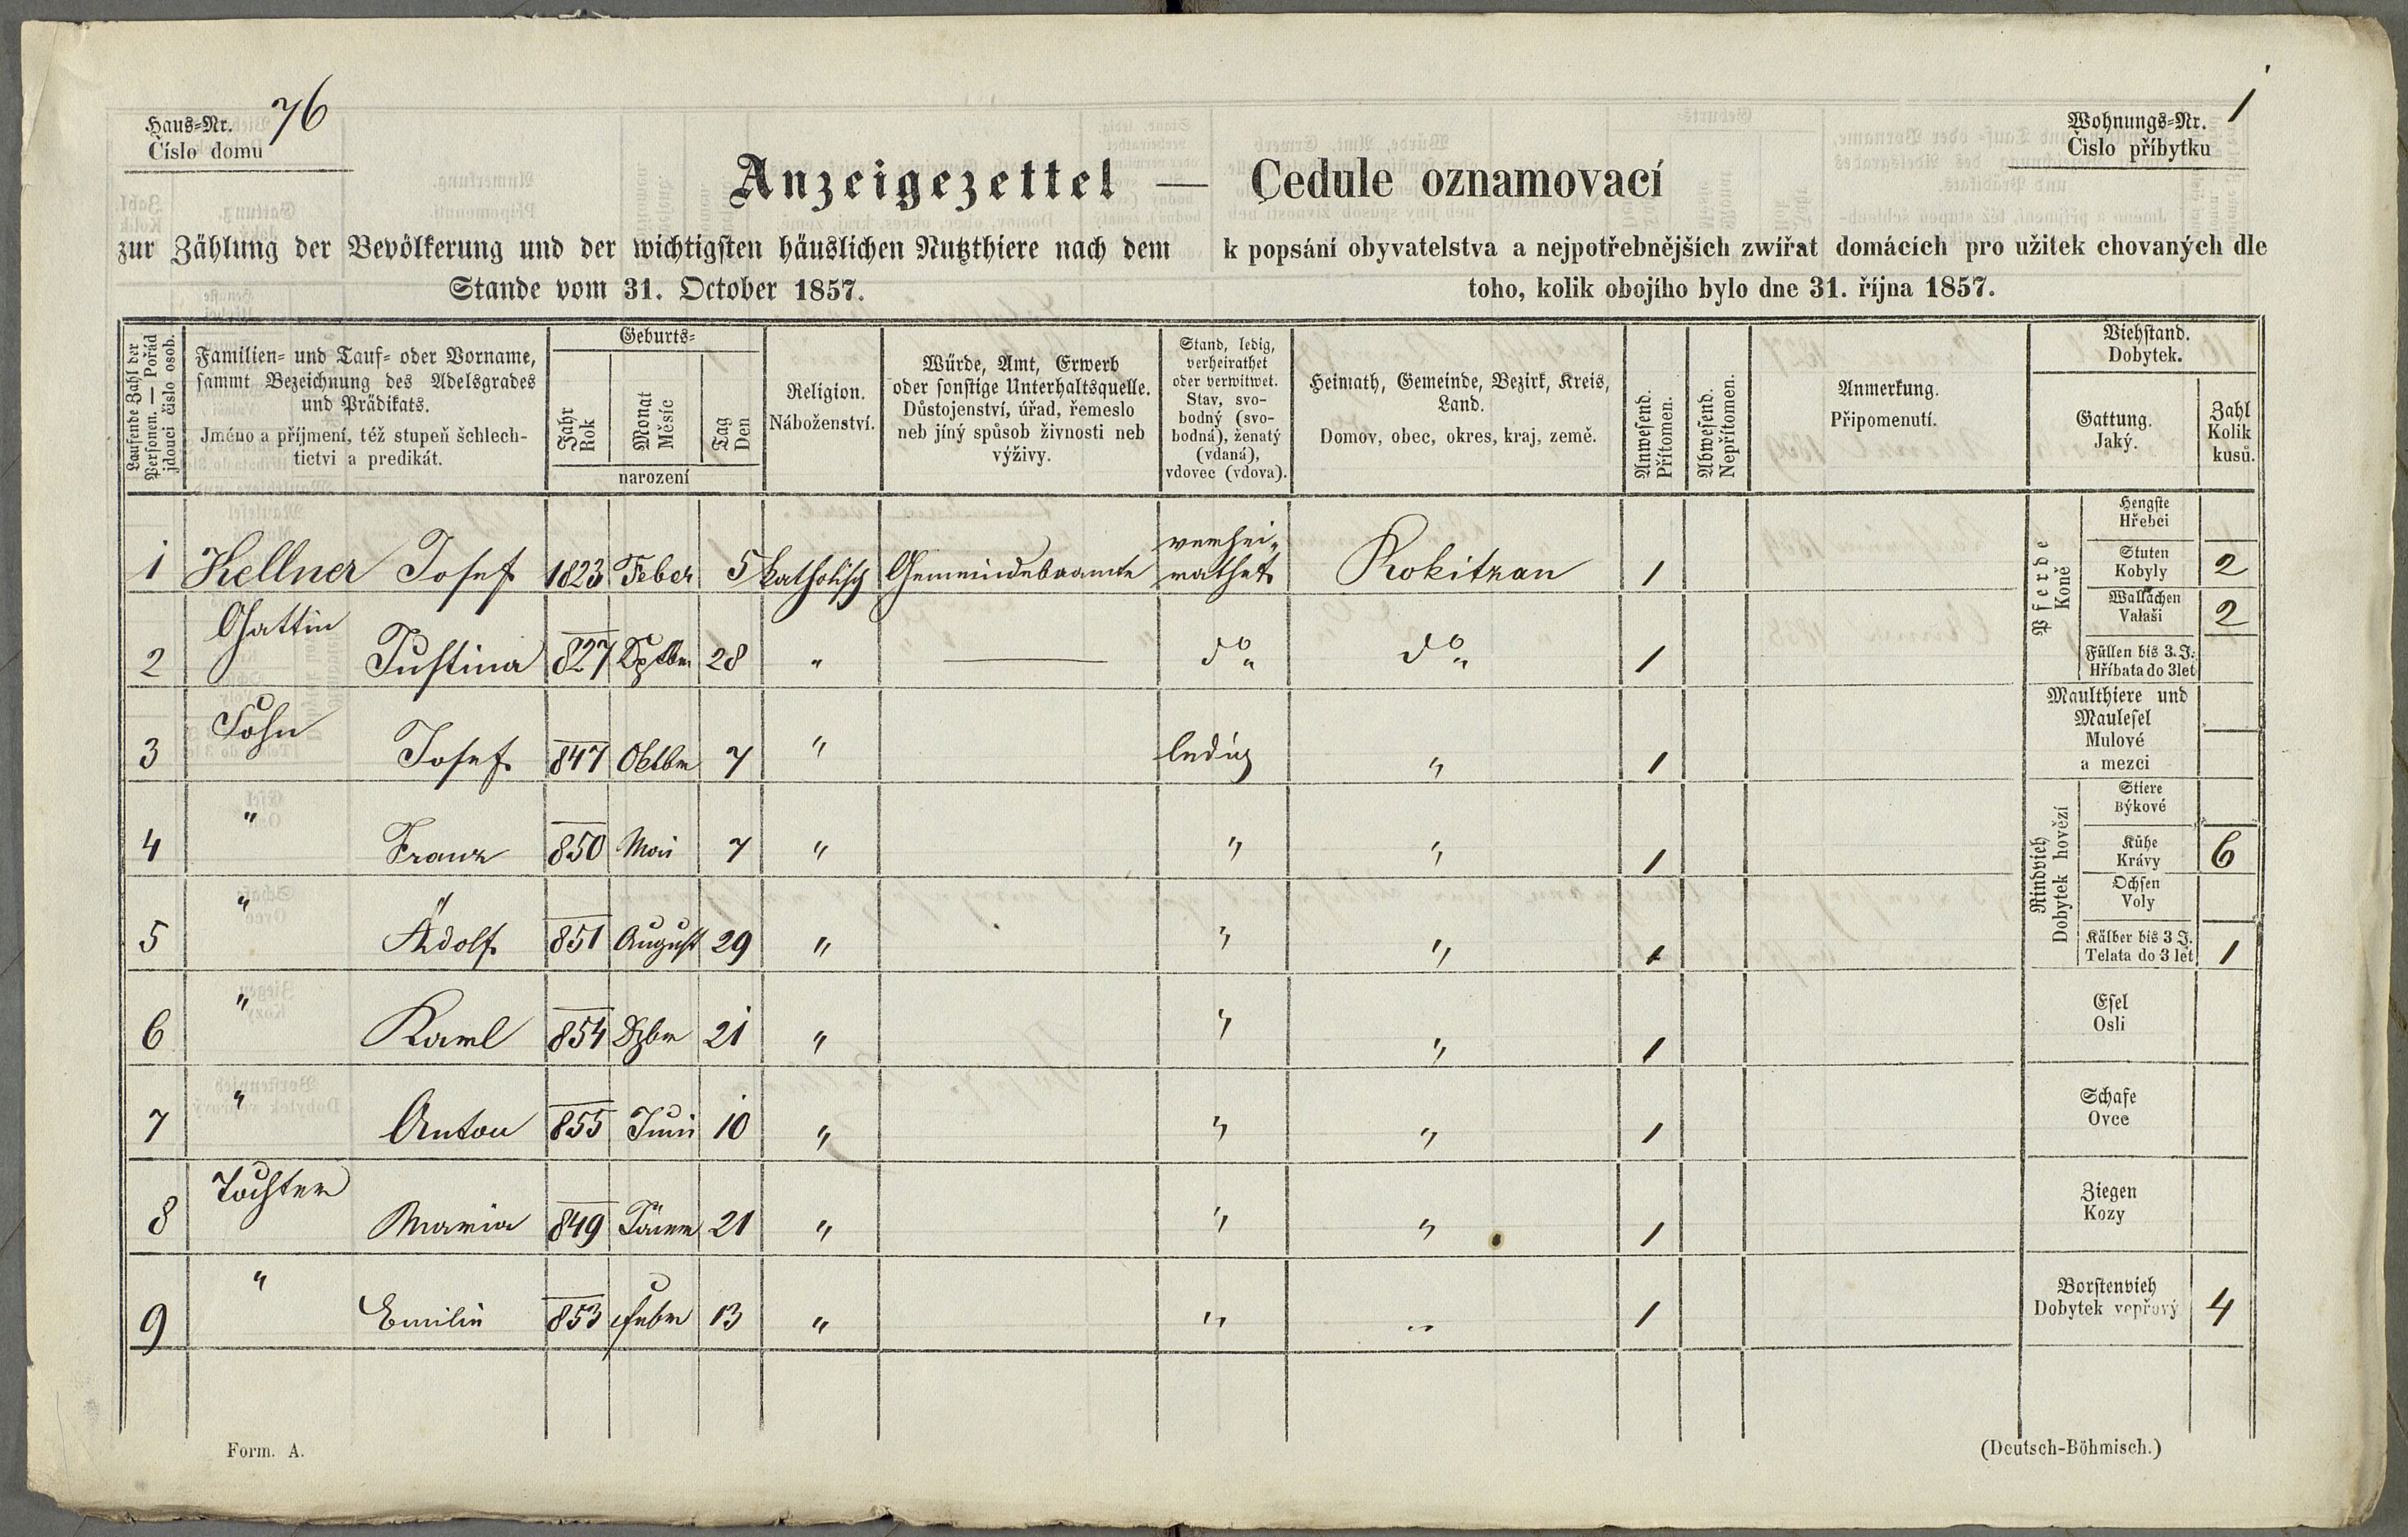 Haus-Nr. 76
Číslo domu
Wohnungs-Nr. 1
Čislo příbytku
Anzeigezettel — Cedule oznamovací
zur Zählung der Bevölkerung und der wichtigsten häuslichen Nutzthiere nach dem
Stande vom 31. October 1857.
k popsání obyvatelstva a nejpotřebnějších zwířat domácích pro užitek chovaných dle
toho, kolik obojího bylo dne 31. října 1857.
Laufende Zahl der
Personen. — Pořád
jdoucí číslo osob.
Familien- und Tauf- oder Vorname,
sammt Bezeichnung des Adelsgrades
und Prädikats.
Jméno a příjmení, též stupeň šchlech-
tictvi a predikát.
Geburts-
Jahr
Rok
Monat
Měsíc
Tag
Den
narození
Religion.
Náboženství.
Würde, Amt, Erwerb
oder sonstige Unterhaltsquelle.
Důstojenství, úřad, řemeslo
neb jíný spůsob živnosti neb
výživy.
Stand, ledig,
verheirathet
oder verwitwet.
Stav, svo-
bodný (svo-
bodná), ženatý
(vdaná),
vdovec (vdova).
Heimath, Gemeinde, Bezirk, Kreis,
Land.
Domov, obec, okres, kraj, země.
Anwesend.
Přítomen.
Abwesend.
Nepřítomen.
Anmerkung.
Připomenutí.
Viehstand.
Dobytek.
Gattung.
Jaký.
Zahl
Kolik
kusů.
1 Kellner Josef 1823 Feber 5 katholisch Gemeindebeamte verhei-
rathet Rokitzan 1
2 Gattin
Justina 827 Sptbr 28 " — do" do" 1
3 Sohn
Josef 847 Oktbr 7 " ledig " 1
4 "
Franz 850 Mai 7 " " " 1
5 "
Adolf 851 August 29 " " " 1
6 "
Karl 854 Dzbr 21 " " " 1
7 "
Anton 855 Juni 10 " " " 1
8 Tochter
Maria 849 Jänner 21 " " " 1
9 "
Emilie 853 Feber 13 " " " 1
Pferde
Koně
Hengste
Hřebci
Stuten
Kobyly 2
Wallachen
Valaši 2
Füllen bis 3. J.
Hříbata do 3 let
Maulthiere und
Maulesel
Mulové
a mezci
Rindvieh
Dobytek hovězí
Stiere
Býkové
Kühe
Krávy 6
Ochsen
Voly
Kälber bis 3 J.
Telata do 3 let 1
Esel
Osli
Schafe
Ovce
Ziegen
Kozy
Borstenvieh
Dobytek vepřový 4
Form. A.
(Deutsch-Böhmisch.)